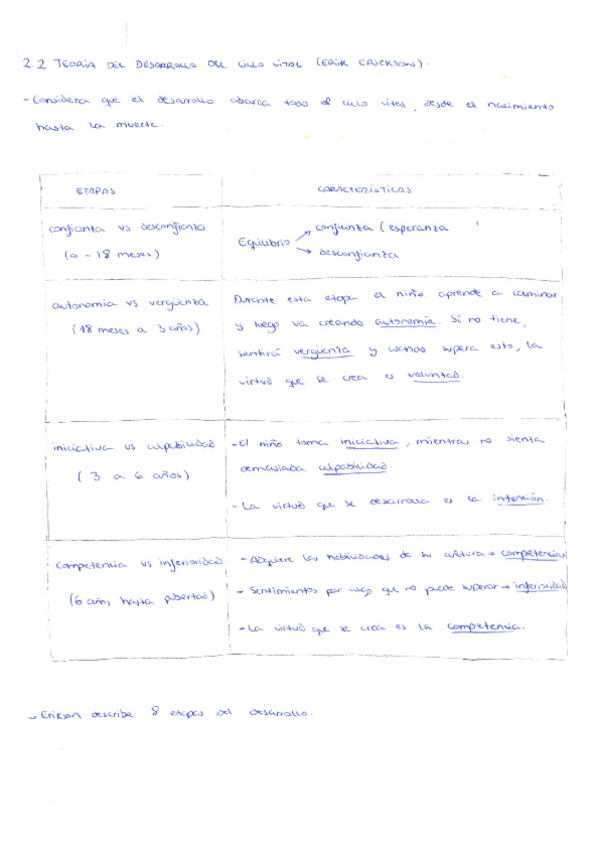 2.2 TEORÍA DEL DESARROLLO DEL CICLO VITAL (ERIK ERICKSON).
- Considera que el desarrollo abarca todo el ciclo vital, desde el nacimiento
hasta la muerte.
ETAPAS
CARACTERÍSTICAS
confianza vs desconfianza
(0 - 18 meses)
Equilibrio → confianza (esperanza
→ desconfianza
autonomía vs vergüenza
(18 meses a 3 años)
Durante esta etapa el niño aprende a caminar
y luego va creando autonomía. Si no tiene,
sentirá vergüenza y cuando supera esto, la
virtud que se crea es voluntad.
iniciativa vs culpabilidad
(3 a 6 años)
- El niño toma iniciativa, mientras no sienta
demasiada culpabilidad.
- La virtud que se desarrolla es la intención.
competencia vs inferioridad
(6 años hasta pubertad)
- Adquiere las habilidades de su cultura → competencias
- Sentimientos por algo que no puede superar → inferioridad
- La virtud que se crea es la competencia.
→ Erikson describe 8 etapas del desarrollo.